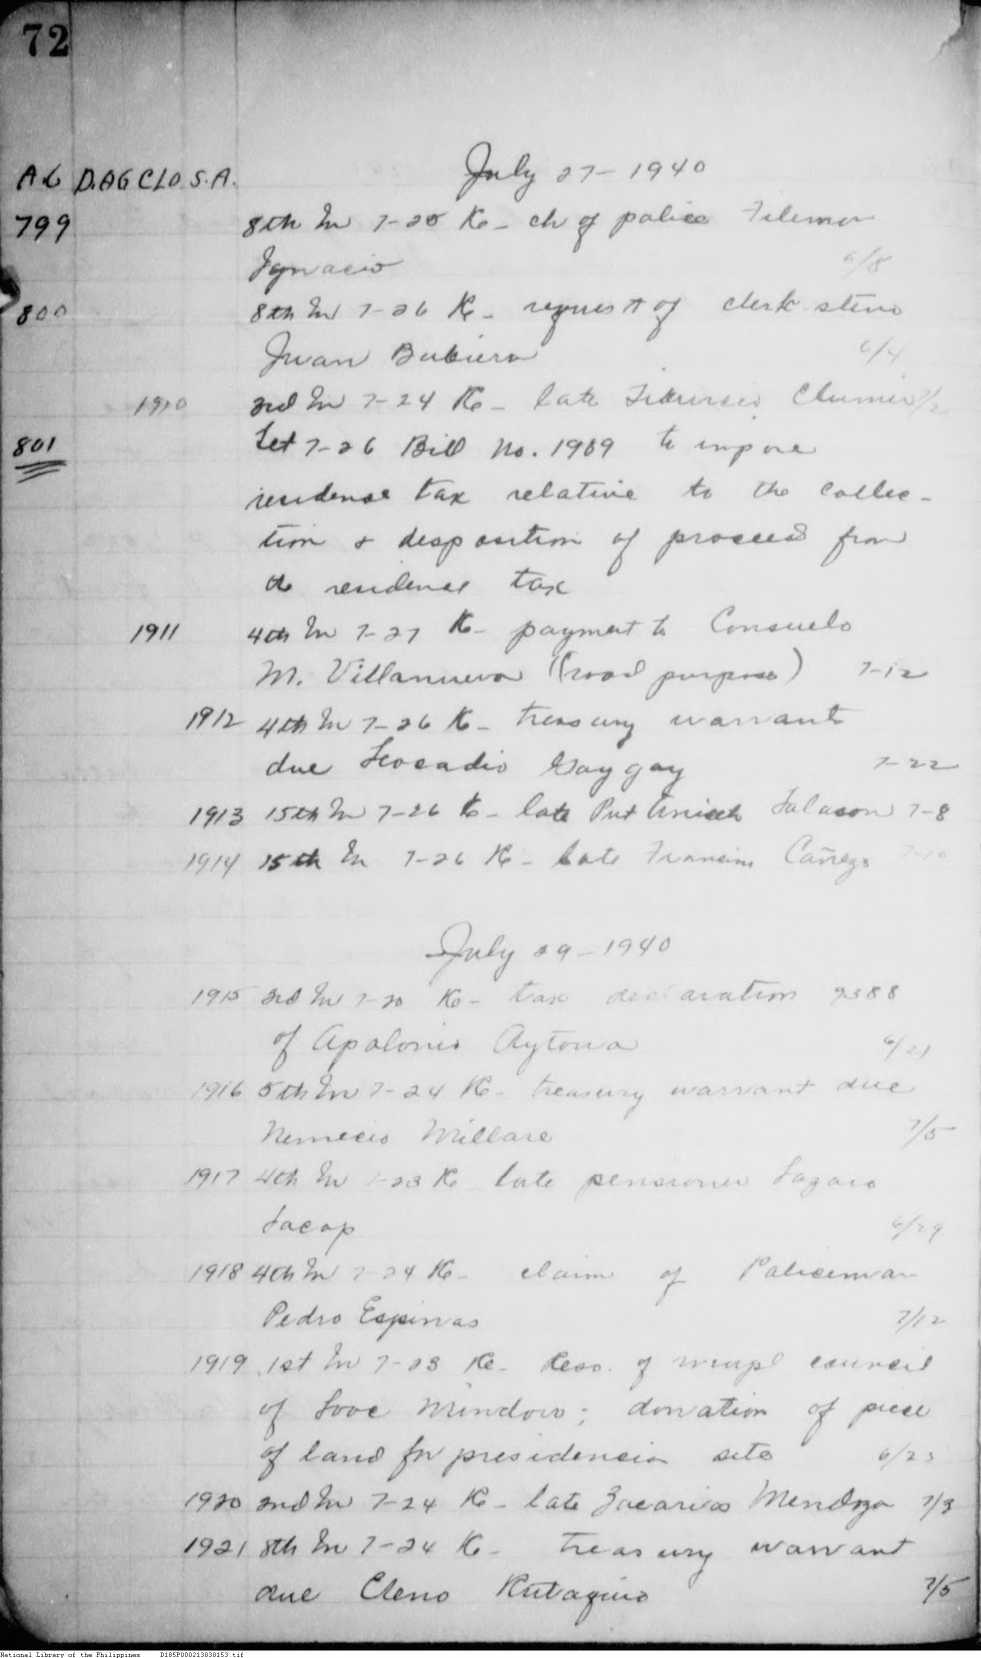 72
A.G D.AG CLO S.A.
July 27-1940
799 8th In 7-25 K- ch of police Filemon
Ignacio 6/8
800 8th In 7-26 K- request of clerk steno
Juan Bubiera 6/4
1910 3rd In 7-24 K- late
801 Let 7-26 Bill No. 1909 to impose
residense tax relative to the collec-
tion & desposition of proceed from
residence tax
1911 4th In 7-27 K- payment to Consuelo
M. Villanueva (road purpose) 7-12
1912 4th In 7-26 K- treasury warrant
due Leocadio Gaygay 7-22
1913 15th In 7-26 K- late Put Salason 7-8
1914 15th In 7-26 K- late
July 29-1940
1915 3rd In 7-20 K- tax declaration 9388
of Apolonio Aytona 6/21
1916 5th In 7-24 K- treasury warrant due
Nemecio Millare 7/5
1917 4th In 7-23 K late pensioner Lazaro
Sacop 6/29
1918 4th In 7-24 K- claim of Policeman
Pedro Espinas 7/12
1919 1st In 7-23 K- Reso. of council
of Looc Mindoro; donation of piece
of land for presidencia site 6/23
1920 2nd In 7-24 K- late Zacarias Mendoza 7/3
1921 8th In 7-24 K- treasury warrant
due Cleno 7/5
National Library of the Philippines D185P000213838153.tif